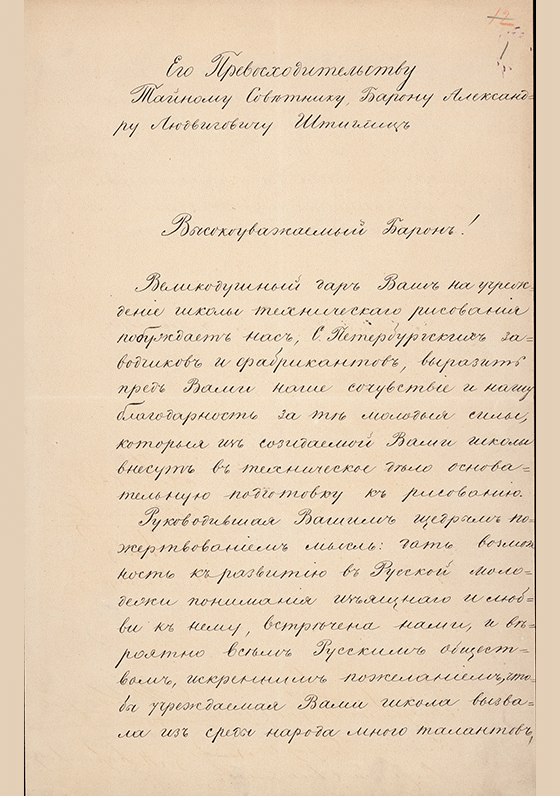 12
1
Его Превосходительству
Тайному Совѣтнику, Барону Александ=
ру Людвиговичу Штиглицъ
Высокоуважаемый Баронъ!
Великодушный даръ Вашъ на учреж=
деніе школы техническаго рисованія
побуждаетъ насъ, С. Петербургскихъ за=
водчиковъ и фабрикантовъ, выразить
предъ Вами наше сочувствіе и нашу
благодарность за тѣ молодыя силы,
которыя изъ созидаемой Вами школы
внесутъ въ техническое дѣло основа=
тельную подготовку къ рисованію.
Руководившая Вашимъ щедрымъ по=
жертвованіемъ мысль: дать возмож=
ность къ развитію въ Русской моло=
дежи пониманія изъящнаго и люб=
ви къ нему, встрѣчена нами, и вѣ=
роятно всѣмъ Русскимъ общест=
вомъ, искреннимъ пожеланіемъ, что=
бы учреждаемая Вами школа вызва=
ла изъ среды народа много талантовъ,